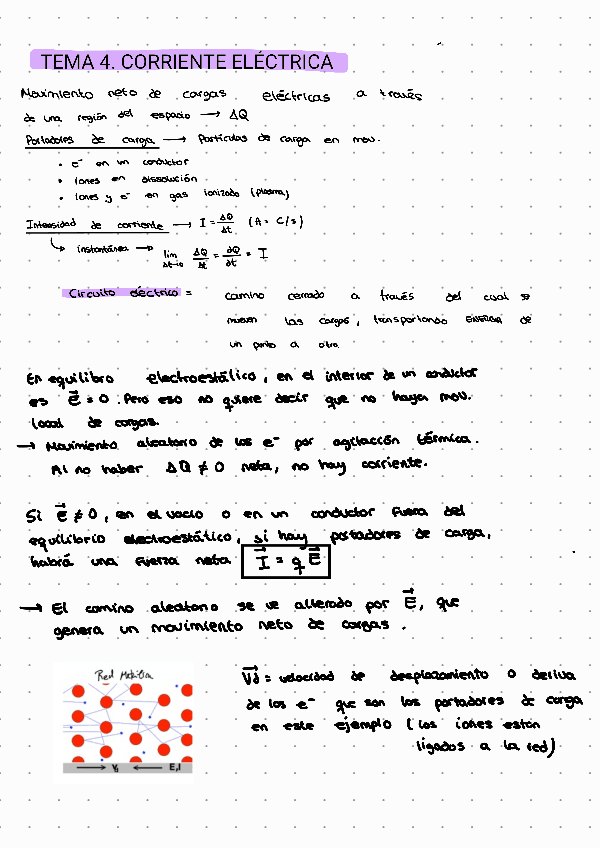 TEMA 4. CORRIENTE ELÉCTRICA
Movimiento neto de cargas eléctricas a través
de una región del espacio → ΔQ
Portadores de carga → Partículas de carga en mov.
• e⁻ en un conductor
• Iones en disolución
• Iones y e⁻ en gas ionizado (plasma)
Intensidad de corriente → I = ΔQ/Δt (A = C/s)
↳ instantánea → lim Δt→0 ΔQ/Δt = dQ/dt = I
Circuito eléctrico = camino cerrado a través del cual se
mueven las cargas, transportando energía de
un punto a otro.
En equilibro electroestático, en el interior de un conductor
es E⃗ = 0. Pero eso no quiere decir que no haya mov.
local de cargas.
→ Movimiento aleatorio de los e⁻ por agitación térmica.
Al no haber ΔQ ≠ 0 neta, no hay corriente.
Si E⃗ ≠ 0, en el vacío o en un conductor fuera del
equilibrio electroestático, si hay portadores de carga,
habrá una fuerza neta I⃗ = q E⃗
→ El camino aleatorio se ve alterado por E⃗, que
genera un movimiento neto de cargas.
Red Metálica
V⃗d = velocidad de desplazamiento o deriva
de los e⁻ que son los portadores de carga
en este ejemplo (los iones están
ligados a la red)
Vd E, I